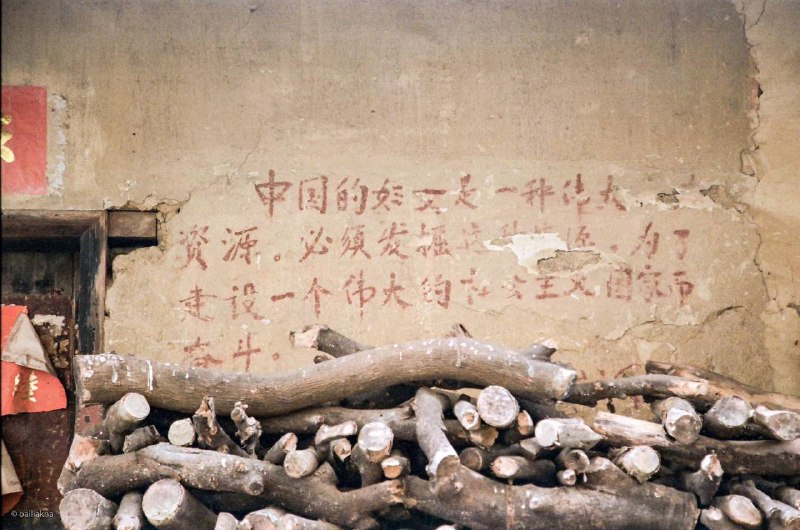 中国的妇女是一种伟大
资源。必须发掘这种资源,为了
建设一个伟大的社会主义国家而
奋斗。
© bailiakna